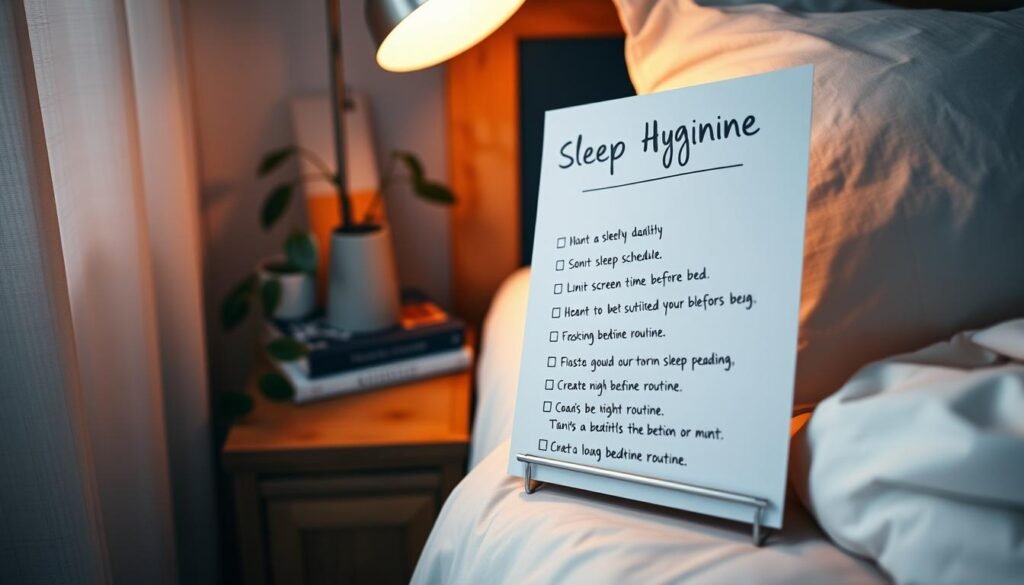 Sleep Hyginine
Hant a sleefy danlity
Sonit sleep schedule.
Linit screen time before bed.
Heant to bet sutilied your blefors beig.
Froking bedtine routine.
Flaste goud our torm sleep peading.
Create nigh befine routine.
Coan's be tight routine.
Tant's a bedtitls the betion or munt.
Crata loug bedtine routine.